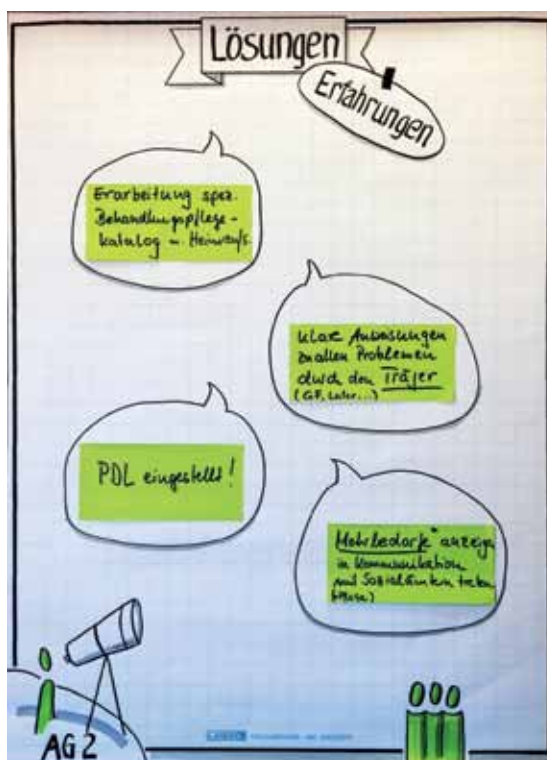 Lösungen
Erfahrungen
Erarbeitung spez.
Behandlungspflege-
katalog
klare Anweisungen
zu allen Problemen
durch den Träger
(GF, Leiter...)
PDL eingestellt!
"Mehrbedarfe" anzeigen
in Kommunikation
mit Sozialämtern treten
AG2